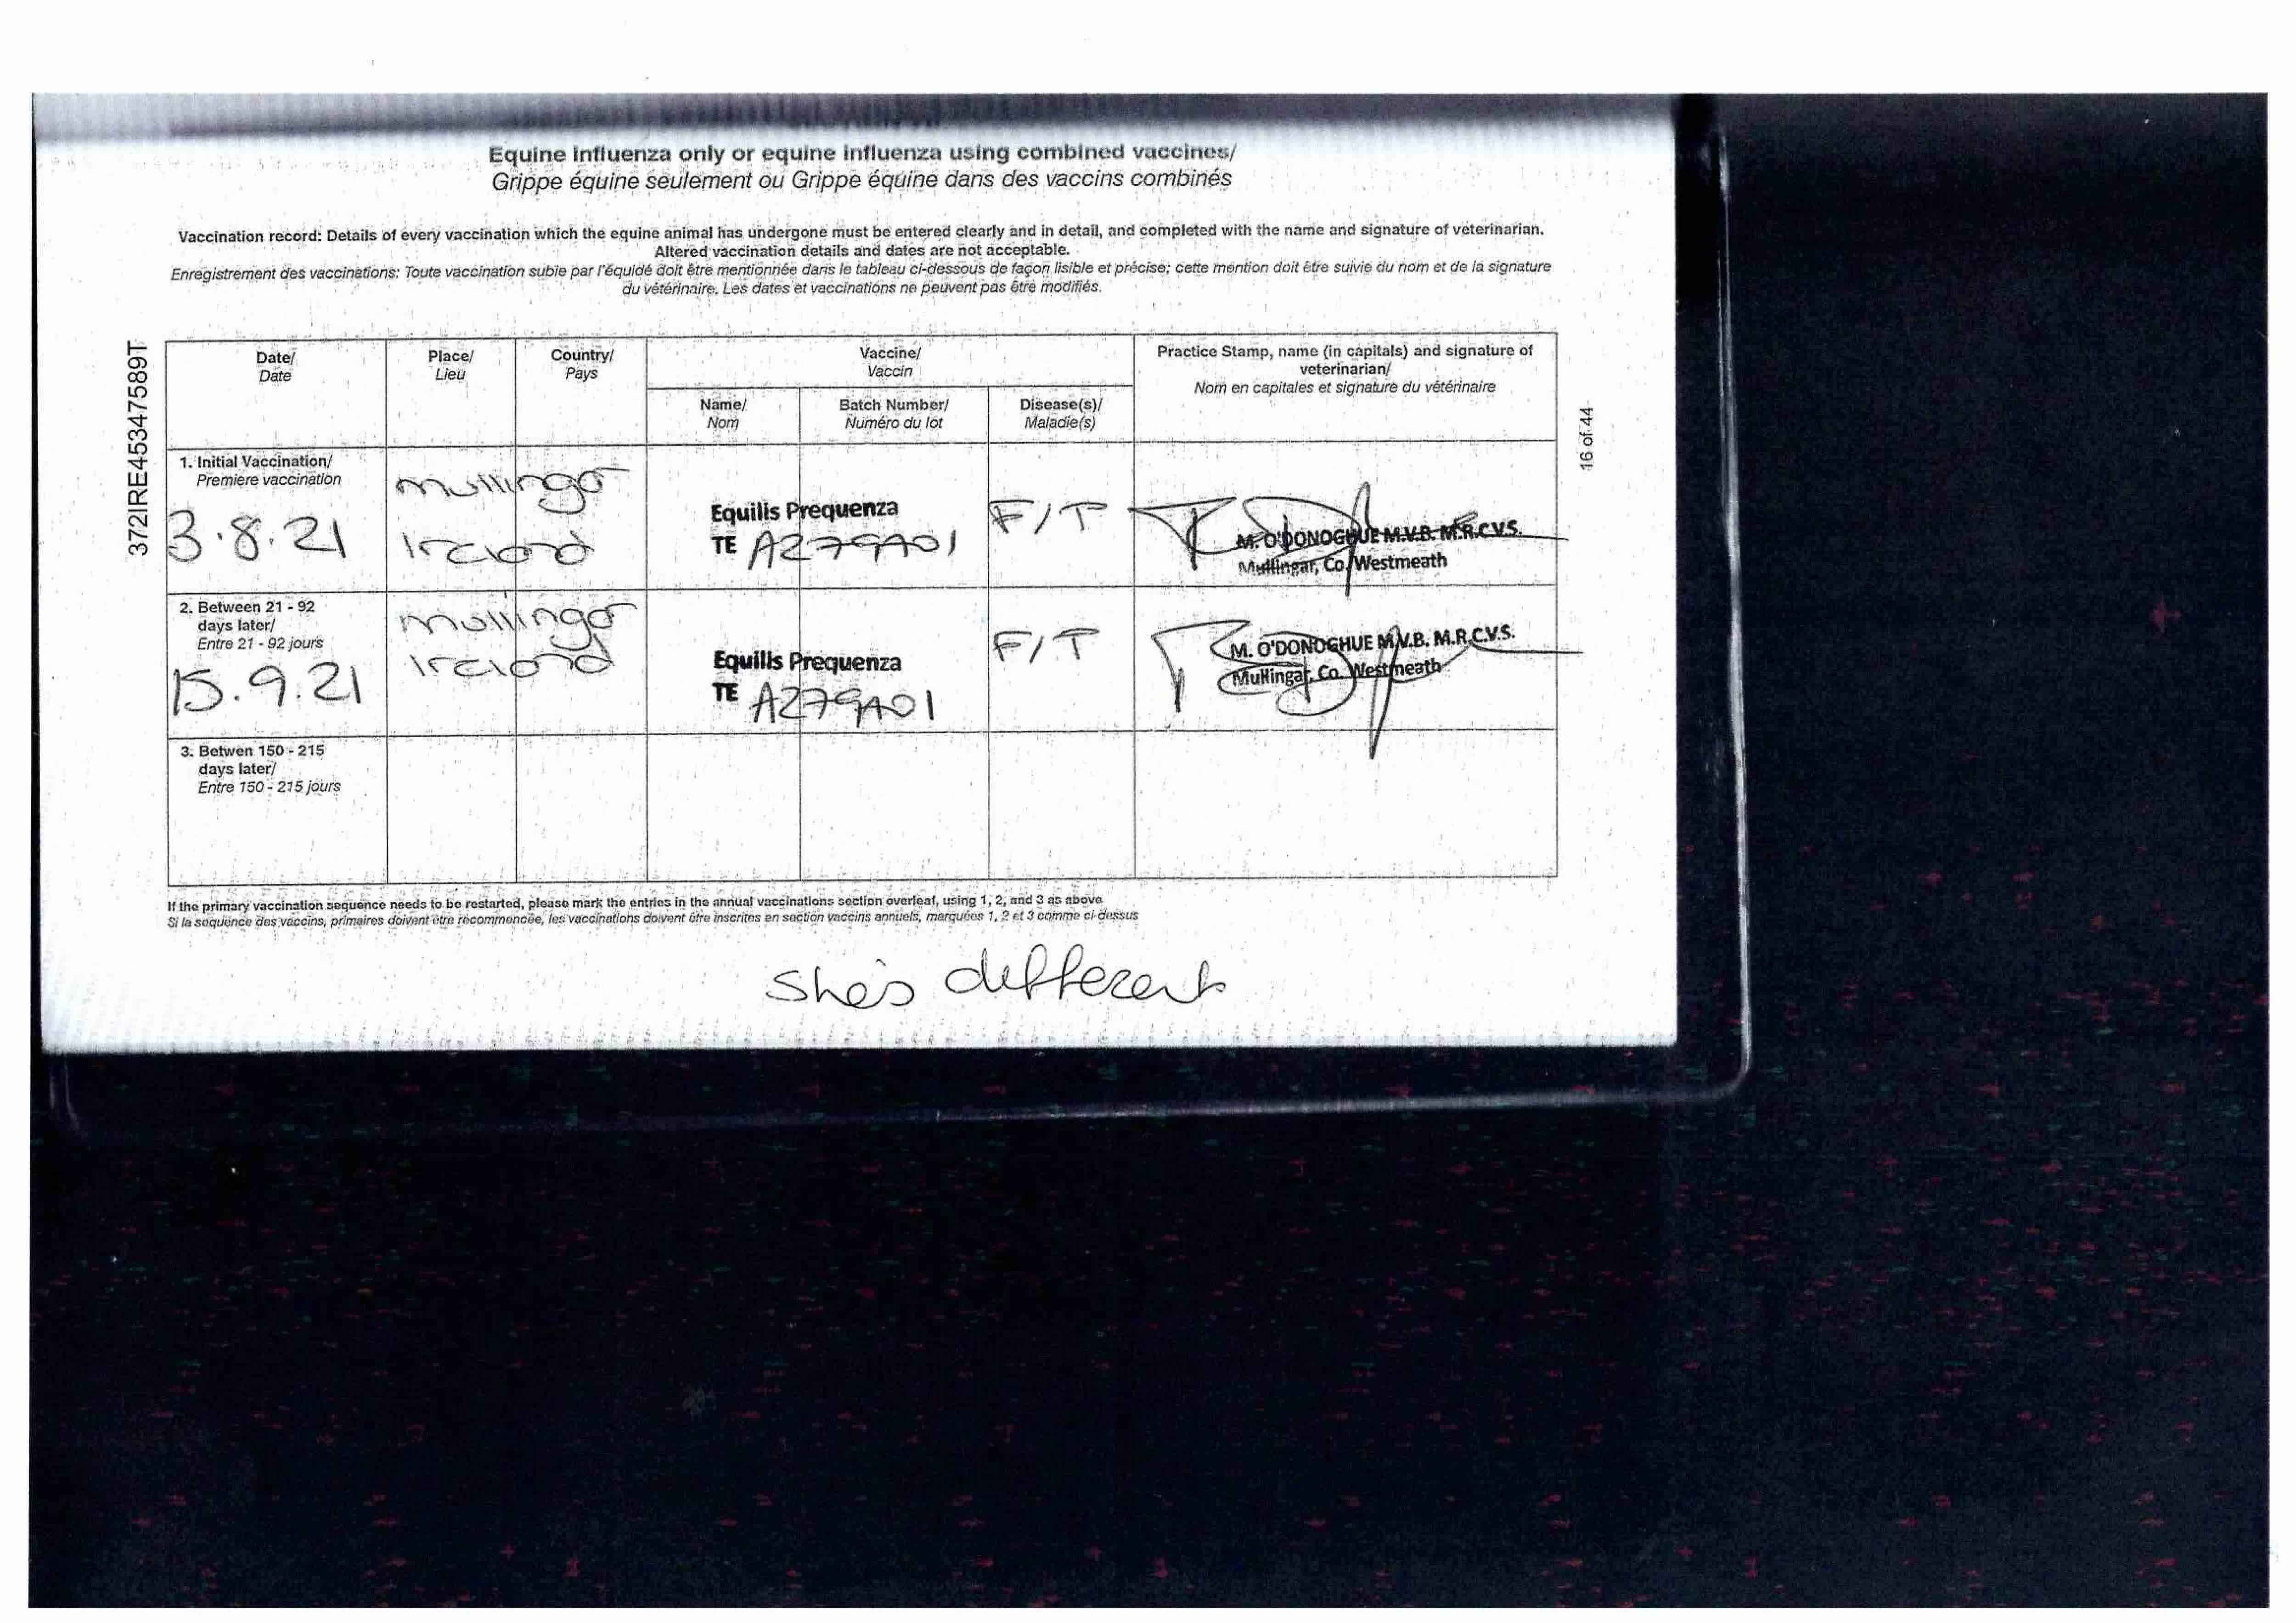 Equine Influenza only or equine influenza using combined vaccines/
Grippe équine seulement ou Grippe équine dans des vaccins combinés
Vaccination record: Details of every vaccination which the equine animal has undergone must be entered clearly and in detail, and completed with the name and signature of veterinarian.
Altered vaccination details and dates are not acceptable.
Enregistrement des vaccinations: Toute vaccination subie par l'équidé doit être mentionnée dans le tableau ci-dessous de façon lisible et précise; cette mention doit être suivie du nom et de la signature
du vétérinaire. Les dates et vaccinations ne peuvent pas être modifiés.
372IRE45347589T
16 of 44
Date/
Date
Place/
Lieu
Country/
Pays
Vaccine/
Vaccin
Name/
Nom
Batch Number/
Numéro du lot
Disease(s)/
Maladie(s)
Practice Stamp, name (in capitals) and signature of
veterinarian/
Nom en capitales et signature du vétérinaire
1. Initial Vaccination/
Premiere vaccination
3.8.21
mullingar
Ireland
Equilis Prequenza
TE A279A01
F/T
M. O'DONOGHUE M.V.B. M.R.C.V.S.
Mullingar, Co. Westmeath
2. Between 21 - 92
days later/
Entre 21 - 92 jours
15.9.21
mullingar
Ireland
Equilis Prequenza
TE A279A01
F/T
M. O'DONOGHUE M.V.B. M.R.C.V.S.
Mullingar, Co. Westmeath
3. Betwen 150 - 215
days later/
Entre 150 - 215 jours
If the primary vaccination sequence needs to be restarted, please mark the entries in the annual vaccinations section overleaf, using 1, 2, and 3 as above
Si la sequence des vaccins, primaires doivent être recommencée, les vaccinations doivent être inscrites en section vaccins annuels, marquées 1, 2 et 3 comme ci-dessus
she's different